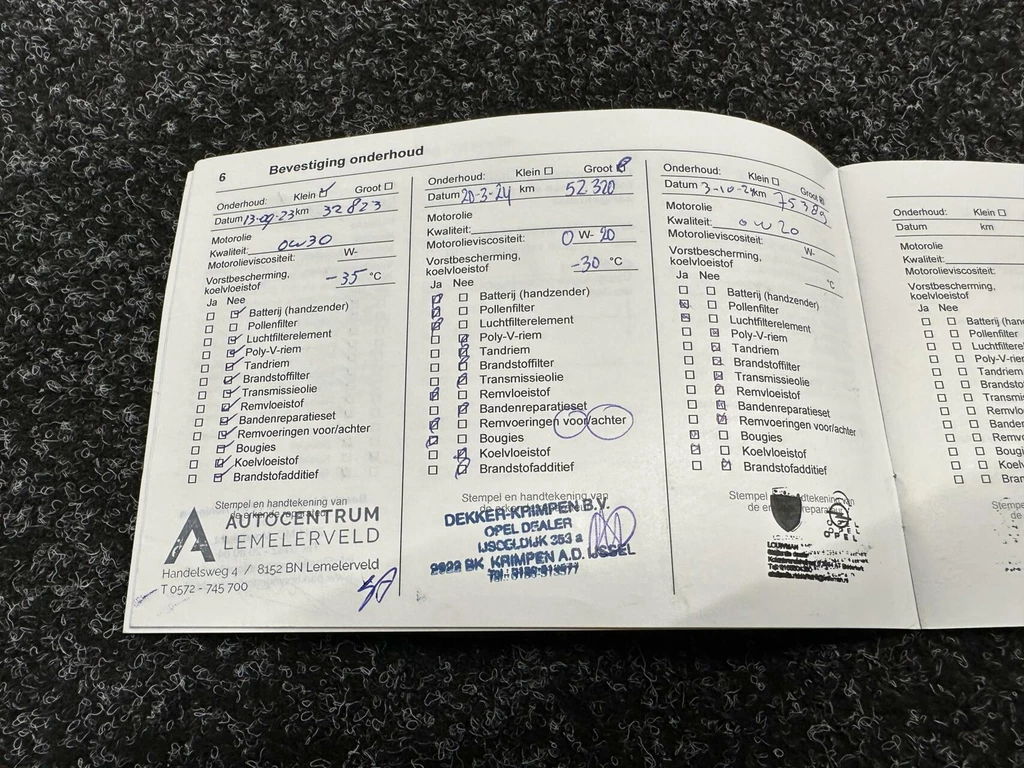 6 Bevestiging onderhoud
Onderhoud: Klein Groot
Datum 13-09-23 km 32823
Motorolie
Kwaliteit: 0w30
Motorolieviscositeit: W-
Vorstbescherming,
koelvloeistof -35 °C
Ja Nee
Batterij (handzender)
Pollenfilter
Luchtfilterelement
Poly-V-riem
Tandriem
Brandstoffilter
Transmissieolie
Remvloeistof
Bandenreparatieset
Remvoeringen voor/achter
Bougies
Koelvloeistof
Brandstofadditief
Stempel en handtekening van
de erkende reparateur
AUTOCENTRUM
LEMELERVELD
Handelsweg 4 / 8152 BN Lemelerveld
T 0572 - 745 700
Onderhoud: Klein Groot
Datum 20-3-24 km 52320
Motorolie
Kwaliteit:
Motorolieviscositeit: 0 W- 20
Vorstbescherming,
koelvloeistof -30 °C
Ja Nee
Batterij (handzender)
Pollenfilter
Luchtfilterelement
Poly-V-riem
Tandriem
Brandstoffilter
Transmissieolie
Remvloeistof
Bandenreparatieset
Remvoeringen voor/achter
Bougies
Koelvloeistof
Brandstofadditief
Stempel en handtekening van
DEKKER-KRIMPEN B.V.
OPEL DEALER
IJSSELDIJK 353 a
2922 BK KRIMPEN A.D. IJSSEL
Onderhoud: Klein Groot
Datum 3-10-24 km 75389
Motorolie
Kwaliteit: 0w20
Motorolieviscositeit: W-
Vorstbescherming,
koelvloeistof °C
Ja Nee
Batterij (handzender)
Pollenfilter
Luchtfilterelement
Poly-V-riem
Tandriem
Brandstoffilter
Transmissieolie
Remvloeistof
Bandenreparatieset
Remvoeringen voor/achter
Bougies
Koelvloeistof
Brandstofadditief
Stempel en handtekening van
de erkende reparateur
OPEL
Onderhoud: Klein
Datum km
Motorolie
Kwaliteit:
Motorolieviscositeit:
Vorstbescherming,
koelvloeistof
Ja Nee
Batterij (hand
Pollenfilter
Luchtfiltere
Poly-V-rie
Tandriem
Brandsto
Transmi
Remvlo
Bander
Remv
Bougi
Koelv
Bran
Stempe
de e